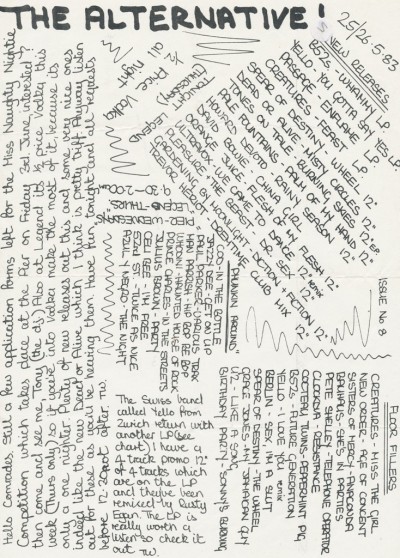 THE ALTERNATIVE!
25/26.5.83
ISSUE No 8
NEW RELEASES
WHAMMY LP.
YELLO - YOU GOTTA SAY YES LP.
PASSAGE - ENFLAME LP
CREATURES - FEAST LP
SPEAR OF DESTINY - WHEEL 12"
DEAD OR ALIVE - MISTY CIRCLES 12"
TONES ON TAIL - BURNING SKIES 12" EP.
PALE FOUNTAINS - PALM OF MY HAND 12"
HOWARD DEVOTO - RAINY SEASON 12"
DAVID BOWIE - CHINA GIRL 12"
ORANGE JUICE - FLESH OF MY FLESH 12"
TONIGHT (THURSDAY)
LEGEND
1/2 Price Vodka
all night
PIER - WEDNESDAYS
LEGEND - THURS.
9.30-2.00am
PHUNKIN AROUND!
COD - IN THE BOTTLE
JALYN BEE - GET ON UP
PAUL PARKER
MAN PARRISH - HIP HOP BE BOP
MONICA - HAUNTED HOUSE OF ROCK
PRINCE CHARLES - IN THE STREETS
JULIUS BROWN - PARTY
CELI BEE - I'M FREE
D ST - TWICE AS NICE
AZUL Y NEGRO - THE NIGHT
FLOOR FILLERS
CREATURES - MISS THE GIRL
NEW ORDER - AGE OF CONSENT
SISTERS OF MERCY - ANACONDA
BAUHAUS - SHE'S IN PARTIES
PETE SHELLEY - TELEPHONE OPERATOR
CLOCKDVA - RESISTANCE
COCTEAU TWINS - PEPPERMINT PIG
B52s - FUTURE GENERATION
YELLO - I LOVE YOU remix
BERLIN - SEX I'M A SLUT
SPEAR OF DESTINY - THE WHEEL
GRACE JONES - MY JAMAICAN GUY
U2 - LIKE A SONG
BIRTHDAY PARTY - SONNY'S BURNING
The Swiss band
called Yello from
Zurich return with
another LP (see
chart). I have a
4 track promo 12"
of 4 tracks which
are on the LP
and they've been
remixed by Rusty
Egan. The LP is
really worth a
listen so check it
out TW.
Hello Comrades. Still a few application forms left for the Miss Naughty Nightie
Competition which takes place at the Pier on Friday 3rd June. Interested?
come and see me Tony (the dj). Also at Legend it's 1/2 price Vodka this
week (Thurs only) so if you're into Vodka make the most of it because its
only a one nighter. Plenty of new releases out this and some very nice ones
indeed like the new Dead or Alive which I think is pretty Diff. Anyway listen
out for these as you'll be hearing them. Have fun tonight and all requests
before 12-30am after TW.